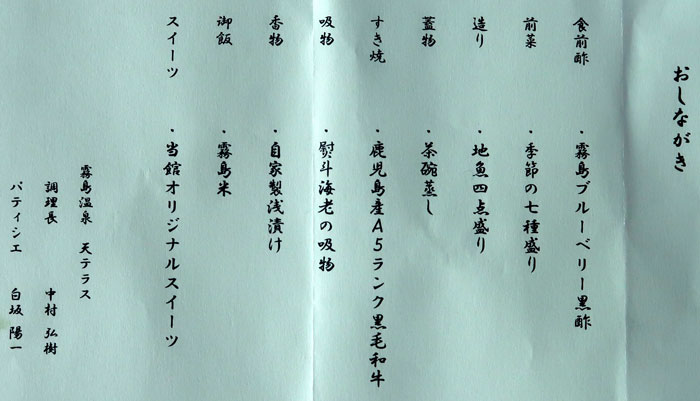 おしながき
食前酢 ・霧島ブルーベリー黒酢
前菜 ・季節の七種盛り
造り ・地魚四点盛り
蓋物 ・茶碗蒸し
すき焼 ・鹿児島産A5ランク黒毛和牛
吸物 ・熨斗海老の吸物
香物 ・自家製浅漬け
御飯 ・霧島米
スイーツ ・当館オリジナルスイーツ
霧島温泉 天テラス
調理長 中村 弘樹
パティシエ 白坂 陽一